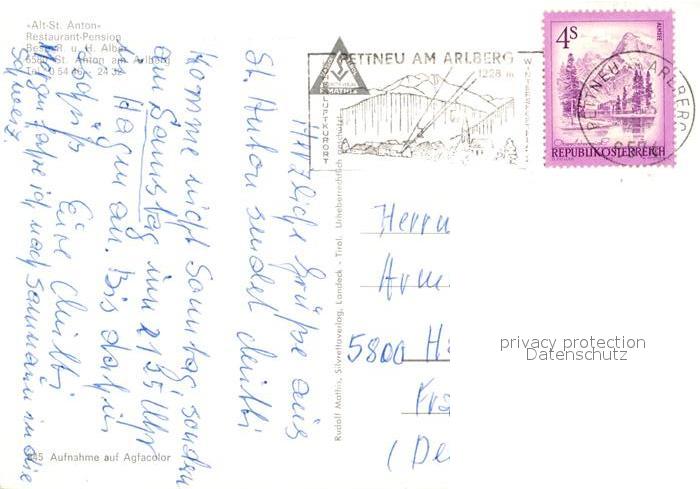 «Alt-St. Anton»
Restaurant-Pension
Bes. R. u. H. Alber
6580 St. Anton am Arlberg
Tel. 0 54 46 - 24 32
Herzliche Grüße aus
St. Anton sendet
Komme nicht Sonntag, sondern
am Samstag um 21 35 Uhr
in Hagen an. Bis dahin
Eure
Morgen fahre ich nach Samnaun in die
Schweiz.
445 Aufnahme auf Agfacolor
Rudolf Mathis, Silvrettaverlag, Landeck - Tirol. Urheberrechtlich geschützt
MATHIS
PETTNEU AM ARLBERG
1228 m
LUFTKURORT
4 S
ALMSEE
REPUBLIK ÖSTERREICH
PETTNEU AM ARLBERG
Herrn
5800 H
(De
privacy protection
Datenschutz